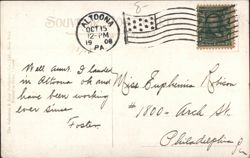 8
Souv
ALTOONA
OCT 15
12-PM
1908
PA
Well Aunt. I landed
in Altoona ok and
have been working
ever since
Foster
Miss Euphemia Robison
#1800 - Arch St.
Philadelphia